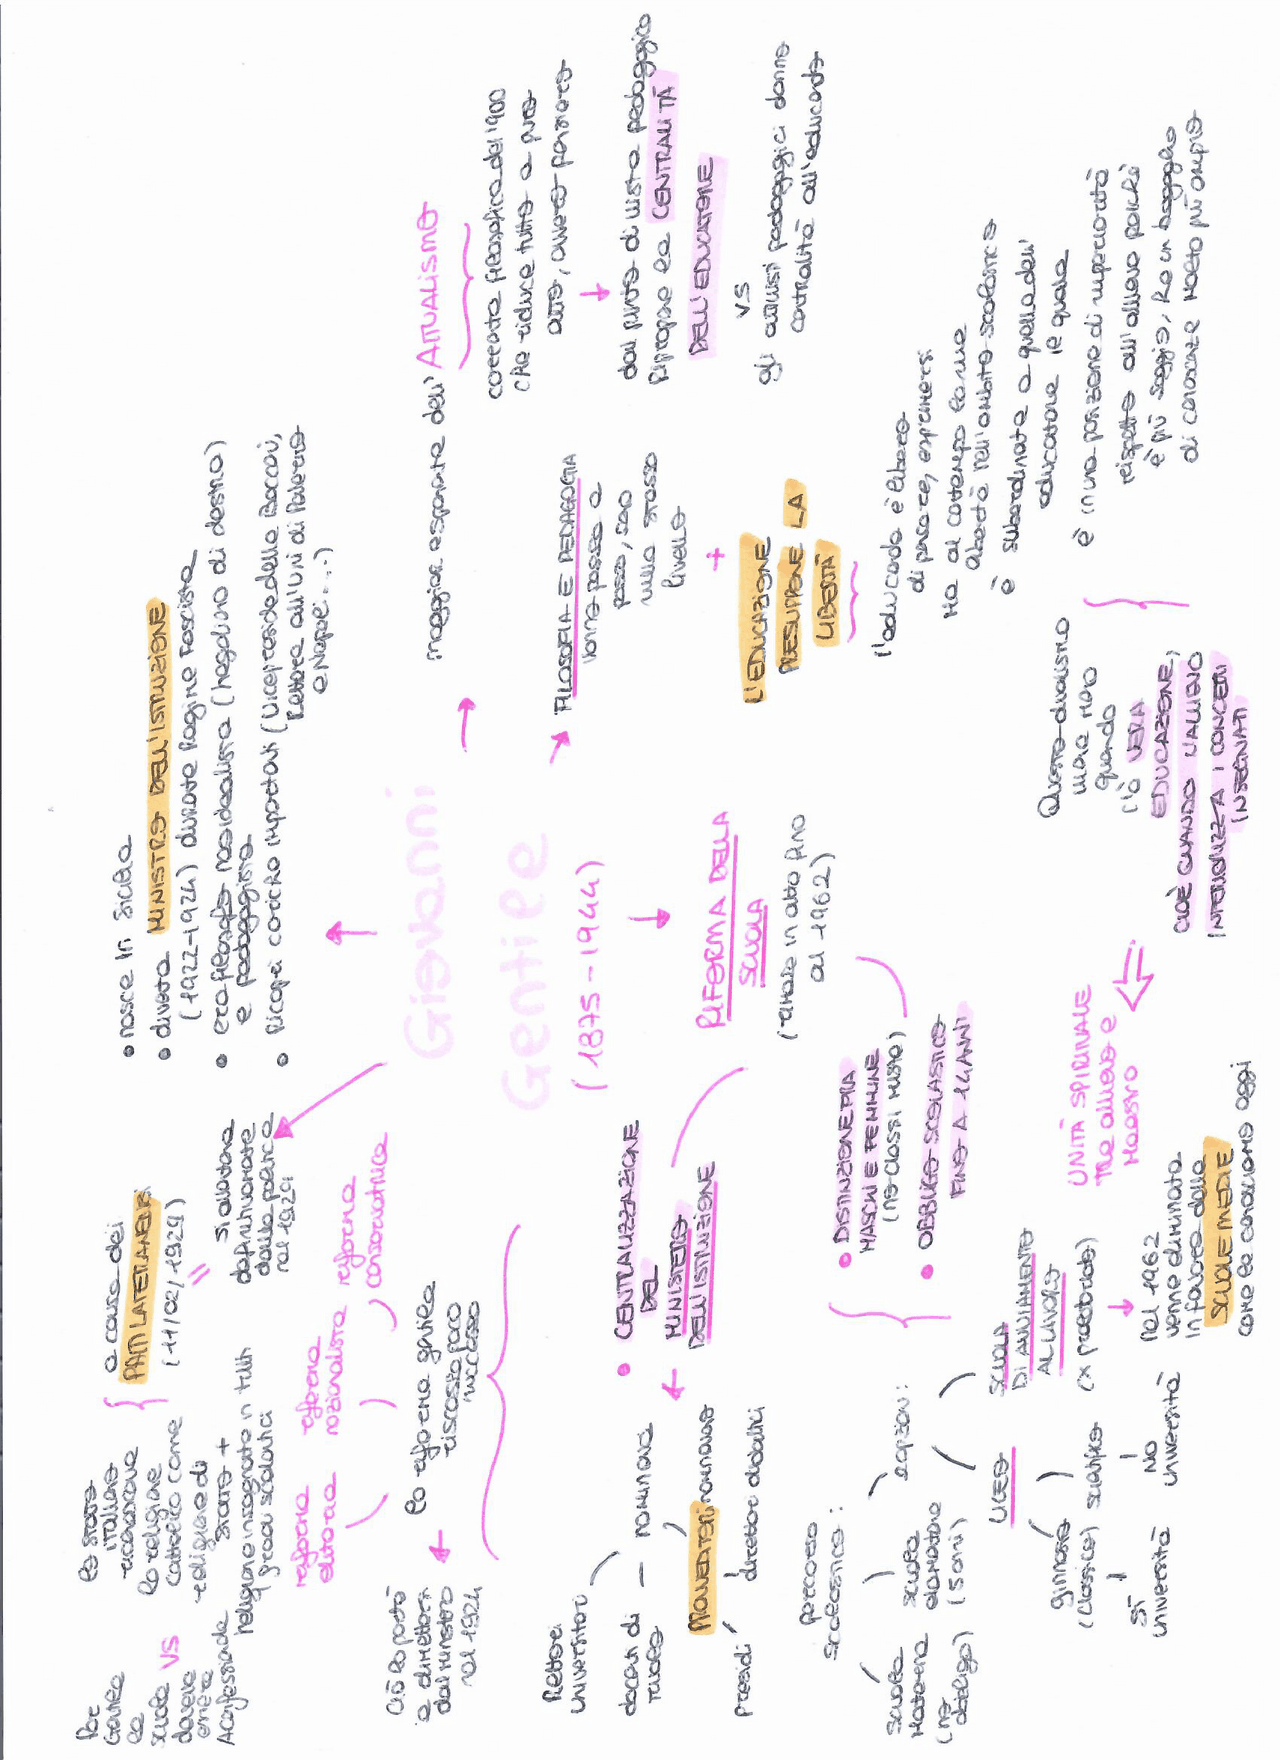 Giovanni
Gentile
(1875-1944)
• nasce in Sicilia
• diventa MINISTRO DELL'ISTRUZIONE
(1922-1924) durante Regime Fascista
• era filosofo neoidealista (hegeliano di destra)
e pedagogista
• Ricoprì cariche importanti (Vicepreside della Bocconi,
Rettore all'Uni di Palermo
e Napoli...)
maggiore esponente dell'ATTUALISMO
corrente filosofica del '900
che riduce tutto a puro
atto, ovvero pensiero
dal punto di vista pedagogico
Ripropone la CENTRALITÀ
DELL'EDUCATORE
VS
gli attivisti pedagogici danno
centralità all'educando
FILOSOFIA E PEDAGOGIA
vanno passo a
passo, sono
sullo stesso
livello
+
L'EDUCAZIONE
PRESUPPONE LA
LIBERTÀ
l'educando è libero
di pensare, esprimersi
Ma al contempo la sua
libertà nell'ambito scolastico
è subordinata a quella dell'
educatore le quale
è in una posizione di superiorità
rispetto all'allievo poiché
è più saggio, ha un bagaglio
di conoscenze molto più ampio
Questo dualismo
muore
quando
c'è VERA
EDUCAZIONE,
CIOÈ QUANDO L'ALLIEVO
INTERIORIZZA I CONCETTI
INSEGNATI
UNITÀ SPIRITUALE
tra allievo e
maestro
si allontana
definitivamente
dalla politica
nel 1929
a causa dei
PATTI LATERANENSI
(11/02/1929)
lo stato
italiano
riconosceva
la religione
Cattolica come
religione di
stato +
religione insegnata in tutti
gradi scolastici
VS
Per
Gentile
la
scuola
doveva
essere
Aconfessionale
RIFORMA DELLA
SCUOLA
(rimane in atto fino
al 1962)
• CENTRALIZZAZIONE
DEL
MINISTERO
DELL'ISTRUZIONE
Rettori
universitari
docenti di
ruolo
nominava
PROVVEDITORI nominavano
presidi
direttori didattici
• DISTINZIONE FRA
MASCHI E FEMMINE
(no classi miste)
• OBBLIGO SCOLASTICO
FINO A 14 ANNI
percorso
scolastico:
scuola
Materna
(no
obbligo)
scuola
elementare
(5 anni)
opzioni:
LICEO
ginnasio
(classico)
scientifico
SÌ
università
NO
università
SCUOLA
DI AVVIAMENTO
AL LAVORO
(x proletariato)
Nel 1962
venne eliminata
in favore della
SCUOLE MEDIE
come le conosciamo oggi
la riforma gentile
riscosse poco
successo
riforma
elitaria
riforma
nazionalista
riforma
conservatrice
ciò lo portò
a dimettersi
dal ministro
nel 1924